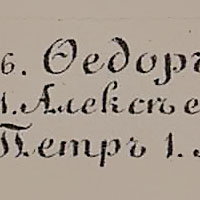 6. Ѳедоръ
1. Алексѣе
Петръ 1.